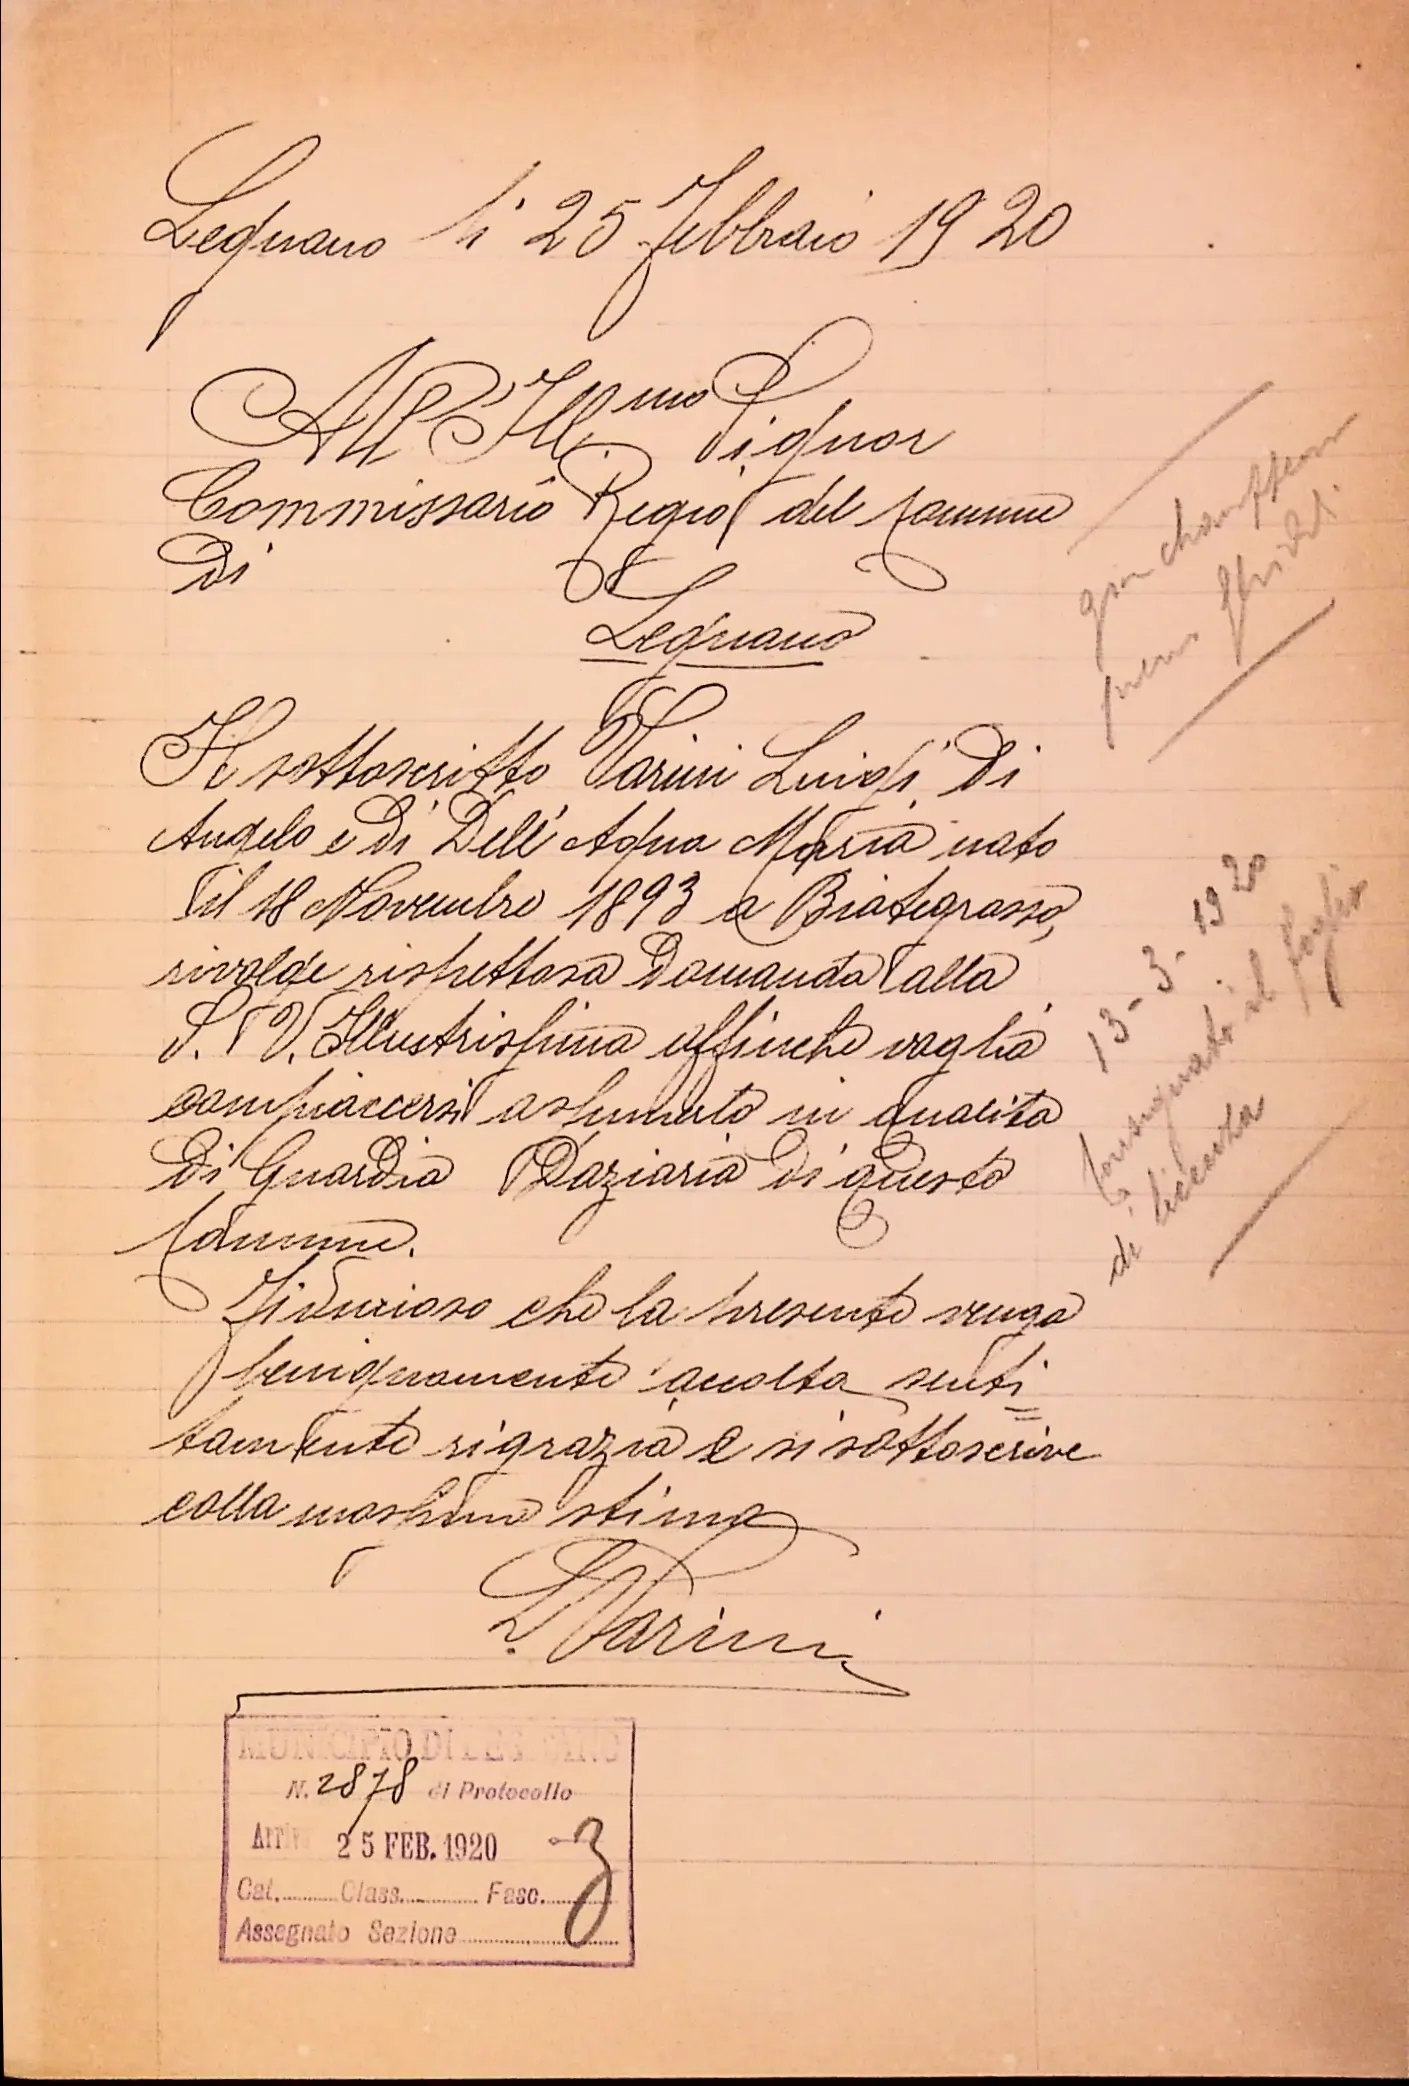 Legnano li 25 Febbraio 1920
All'Ill.mo Signor
Commissario Regio del Comune
Di
Legnano
Il sottoscritto Parini Luigi Di
Angelo e Di Dell'Aqua Maria nato
il 18 Novembre 1893 a Biategrasso,
rivolge rispettosa Domanda alla
S. V. Illustrissima affinchè voglia
compiaccersi assumerlo in qualita
Di Guardia Daziaria Di questo
Comune.
Fiducioso che la presente venga
benignamente accolta senti=
tamente rigrazia e si sottoscrive
colla massima stima
L Parini
13-3-1920
Consegnati il foglio
di licenza
MUNICIPIO DI LEGNANO
N. 2878 di Protocollo
Arriv 25 FEB. 1920
Cat. Class. Fasc. 3
Assegnato Sezione